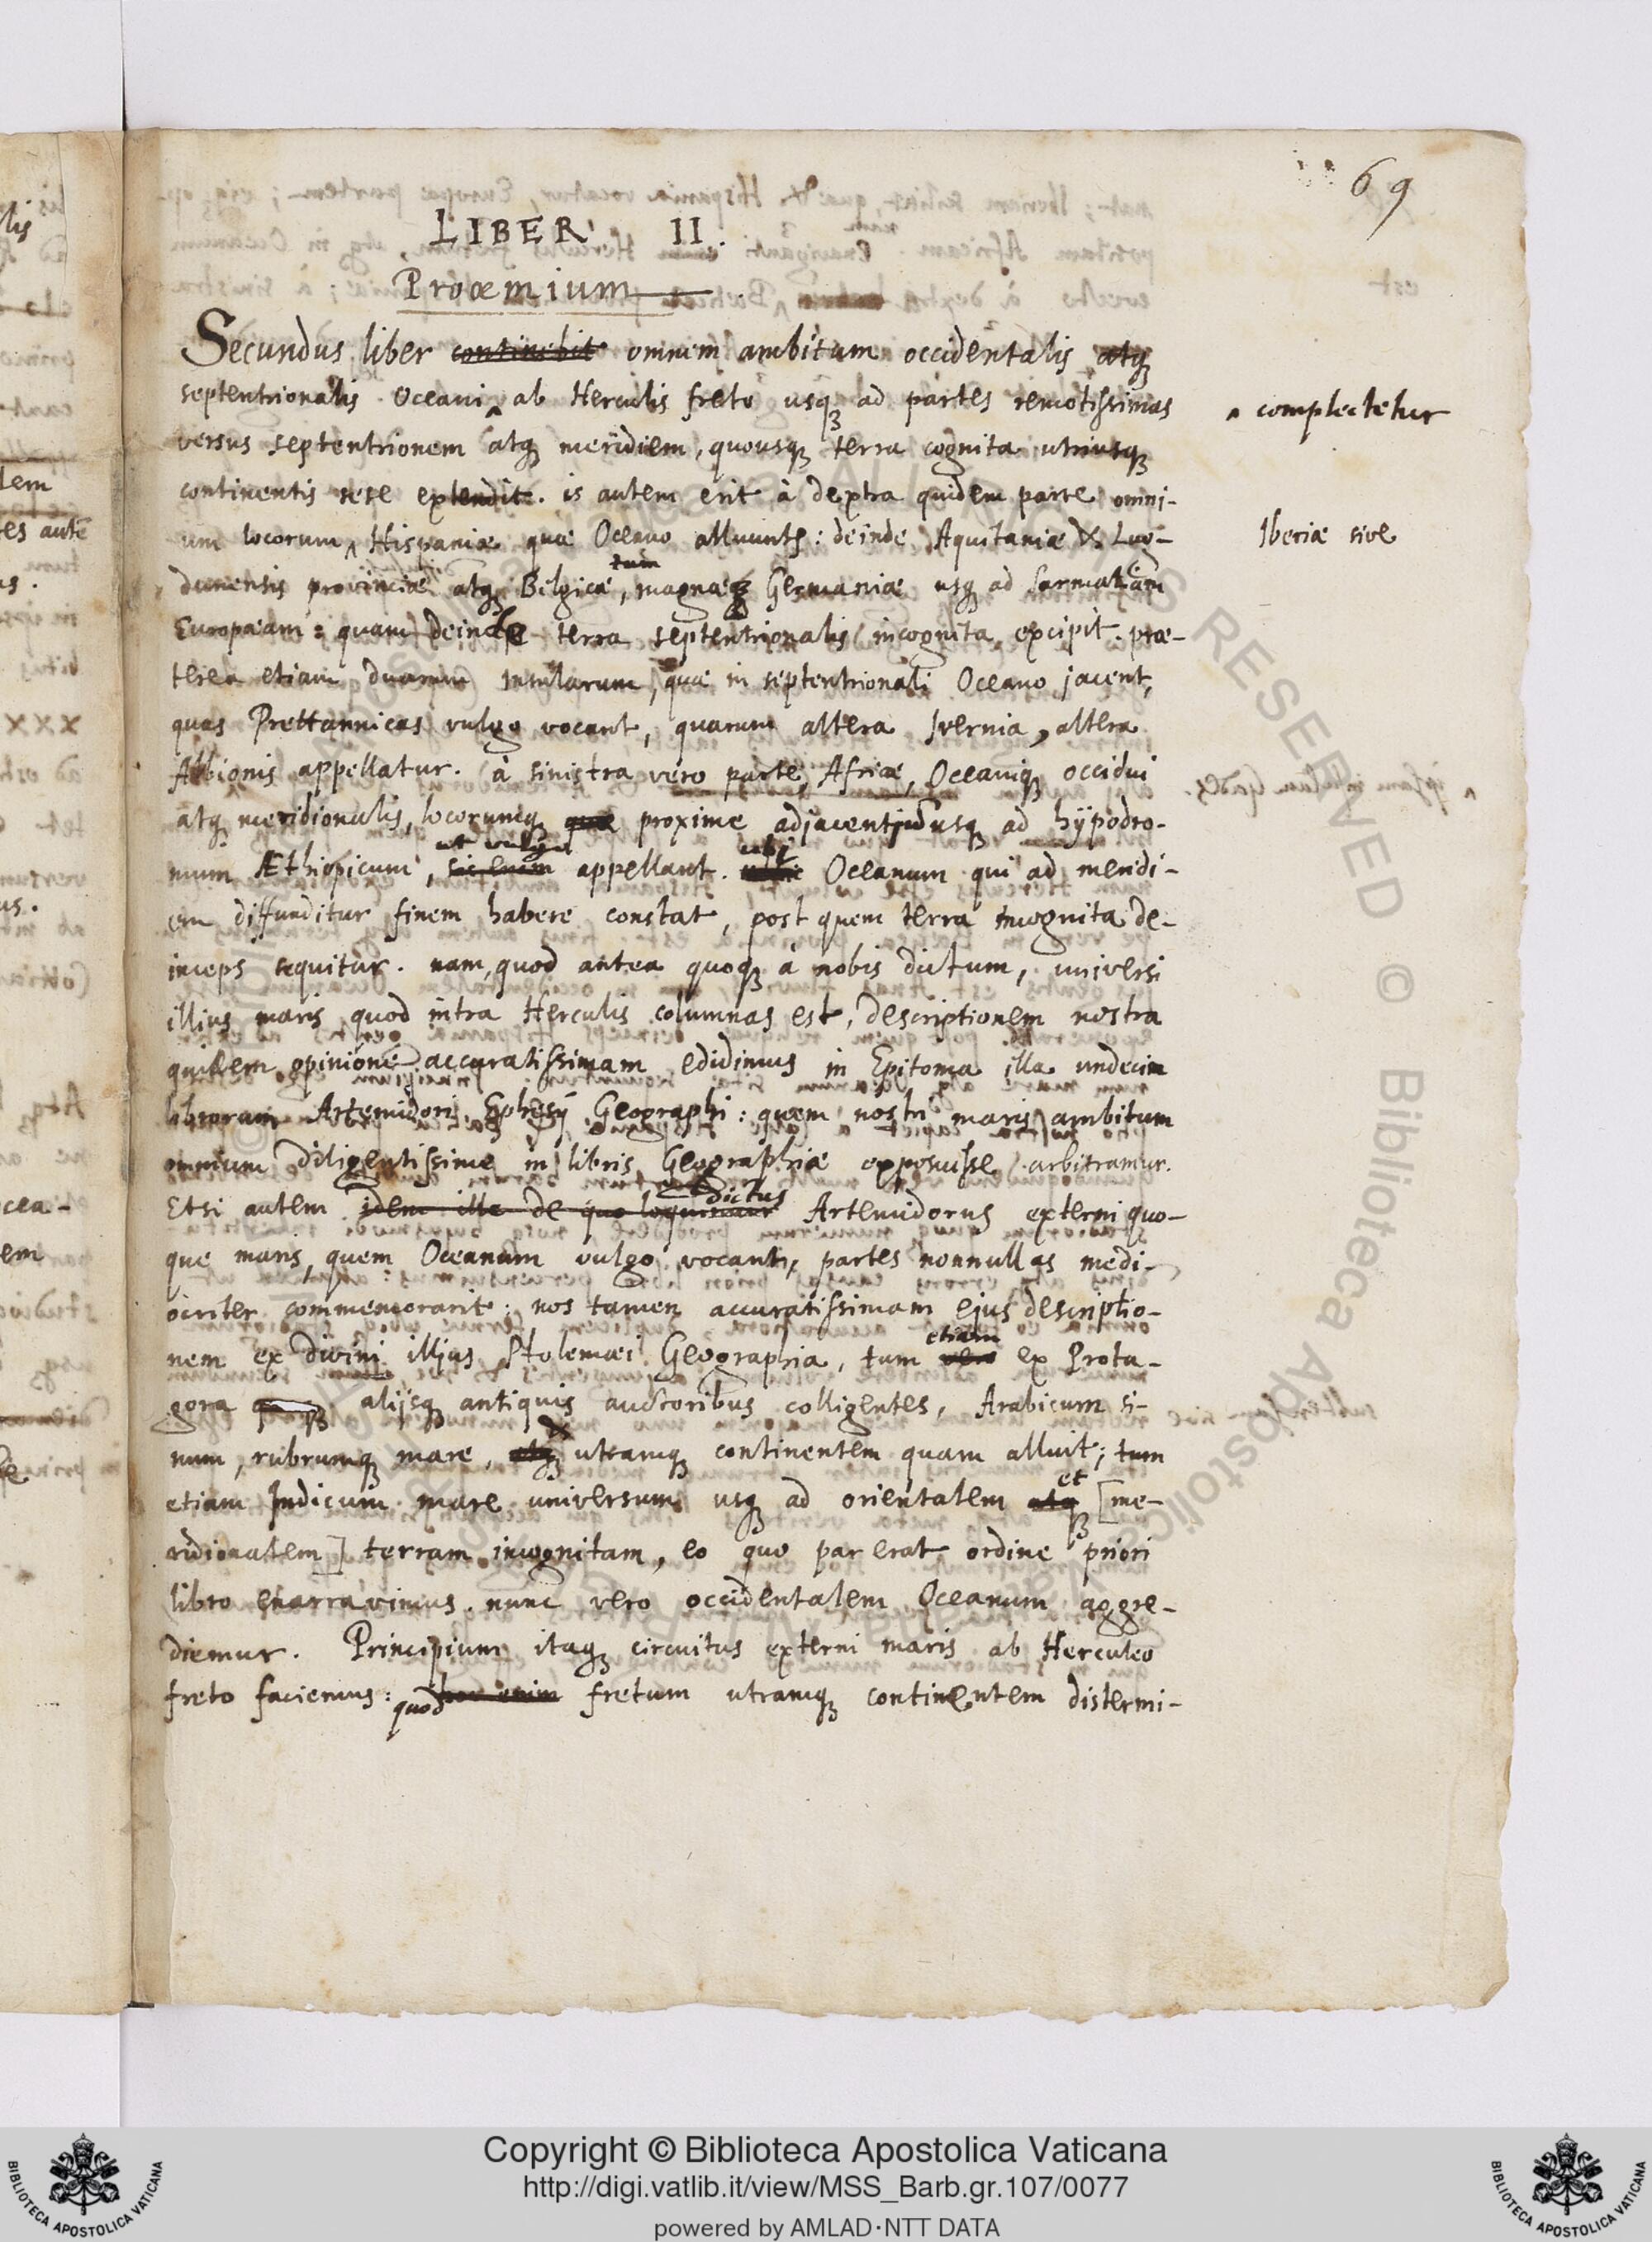 69
LIBER II.
Proœmium
Secundus liber continebit omnem ambitum occidentalis atq
septentrionalis Oceani ^ ab Herculis freto usq ad partes remotissimas
^ complectetur
versus septentrionem atq meridiem, quousq terra cognita utriusq
continentis sese extendit. is autem erit à dextra quidem parte omni-
um locorum ^ Hispaniæ quæ Oceano alluunt: deinde Aquitaniæ & Lug-
Iberiæ sive
dunensis provinciæ atq Belgicæ, tum magnæ Germaniæ usq ad Sarmatiam
Europæam: quam deinde terra septentrionalis incognita excipit. præ-
terea etiam duarum insularum, quæ in septentrionali Oceano jacent,
quas Prettannicas vulgo vocant, quarum altera Ivernia, altera
Albionis appellatur. à sinistra vero parte, Africæ, Oceaniq occidui
atq meridionalis, locorumq quæ proxime adjacentium usq ad hÿpodro-
mum Æthiopicum, sic enim ut vulgo appellant. ubi Oceanum qui ad meridi-
em diffunditur finem habere constat, post quem terra incognita de-
inceps sequitur. nam, quod antea quoq à nobis dictum, universi
illius maris, quod intra Herculis columnas est, descriptionem nostra
quidem opinione accuratissimam edidimus in Epitoma illa undecim
librorum Artemidori Ephesÿ Geographi: quem nostri maris ambitum
omnium diligentissime in libris Geographiæ exposuisse arbitramur.
Etsi autem idem ille de quo loquimur dictus Artemidorus externi quo-
que maris, quem Oceanum vulgo vocant, partes nonnullas medi-
ocriter commemorarit: nos tamen accuratissimam ejus descriptio-
nem ex divini illius Ptolemæi Geographia, tum vero etiam ex Prota-
gora alijsq antiquis auctoribus colligentes, Arabicum si-
num, rubrumq mare, atq & utramq continentem quam alluit; tum
etiam Indicum mare universum usq ad orientalem atq et [me-
ridionalem] terram incognitam, eo quo par erat ordine priori
libro enarravimus. nunc vero occidentalem Oceanum aggre-
diemur. Principium itaq circuitus externi maris ab Herculeo
freto faciemus: quod hoc enim fretum utramq continentem distermi-
Copyright © Biblioteca Apostolica Vaticana
http://digi.vatlib.it/view/MSS_Barb.gr.107/0077
powered by AMLAD·NTT DATA